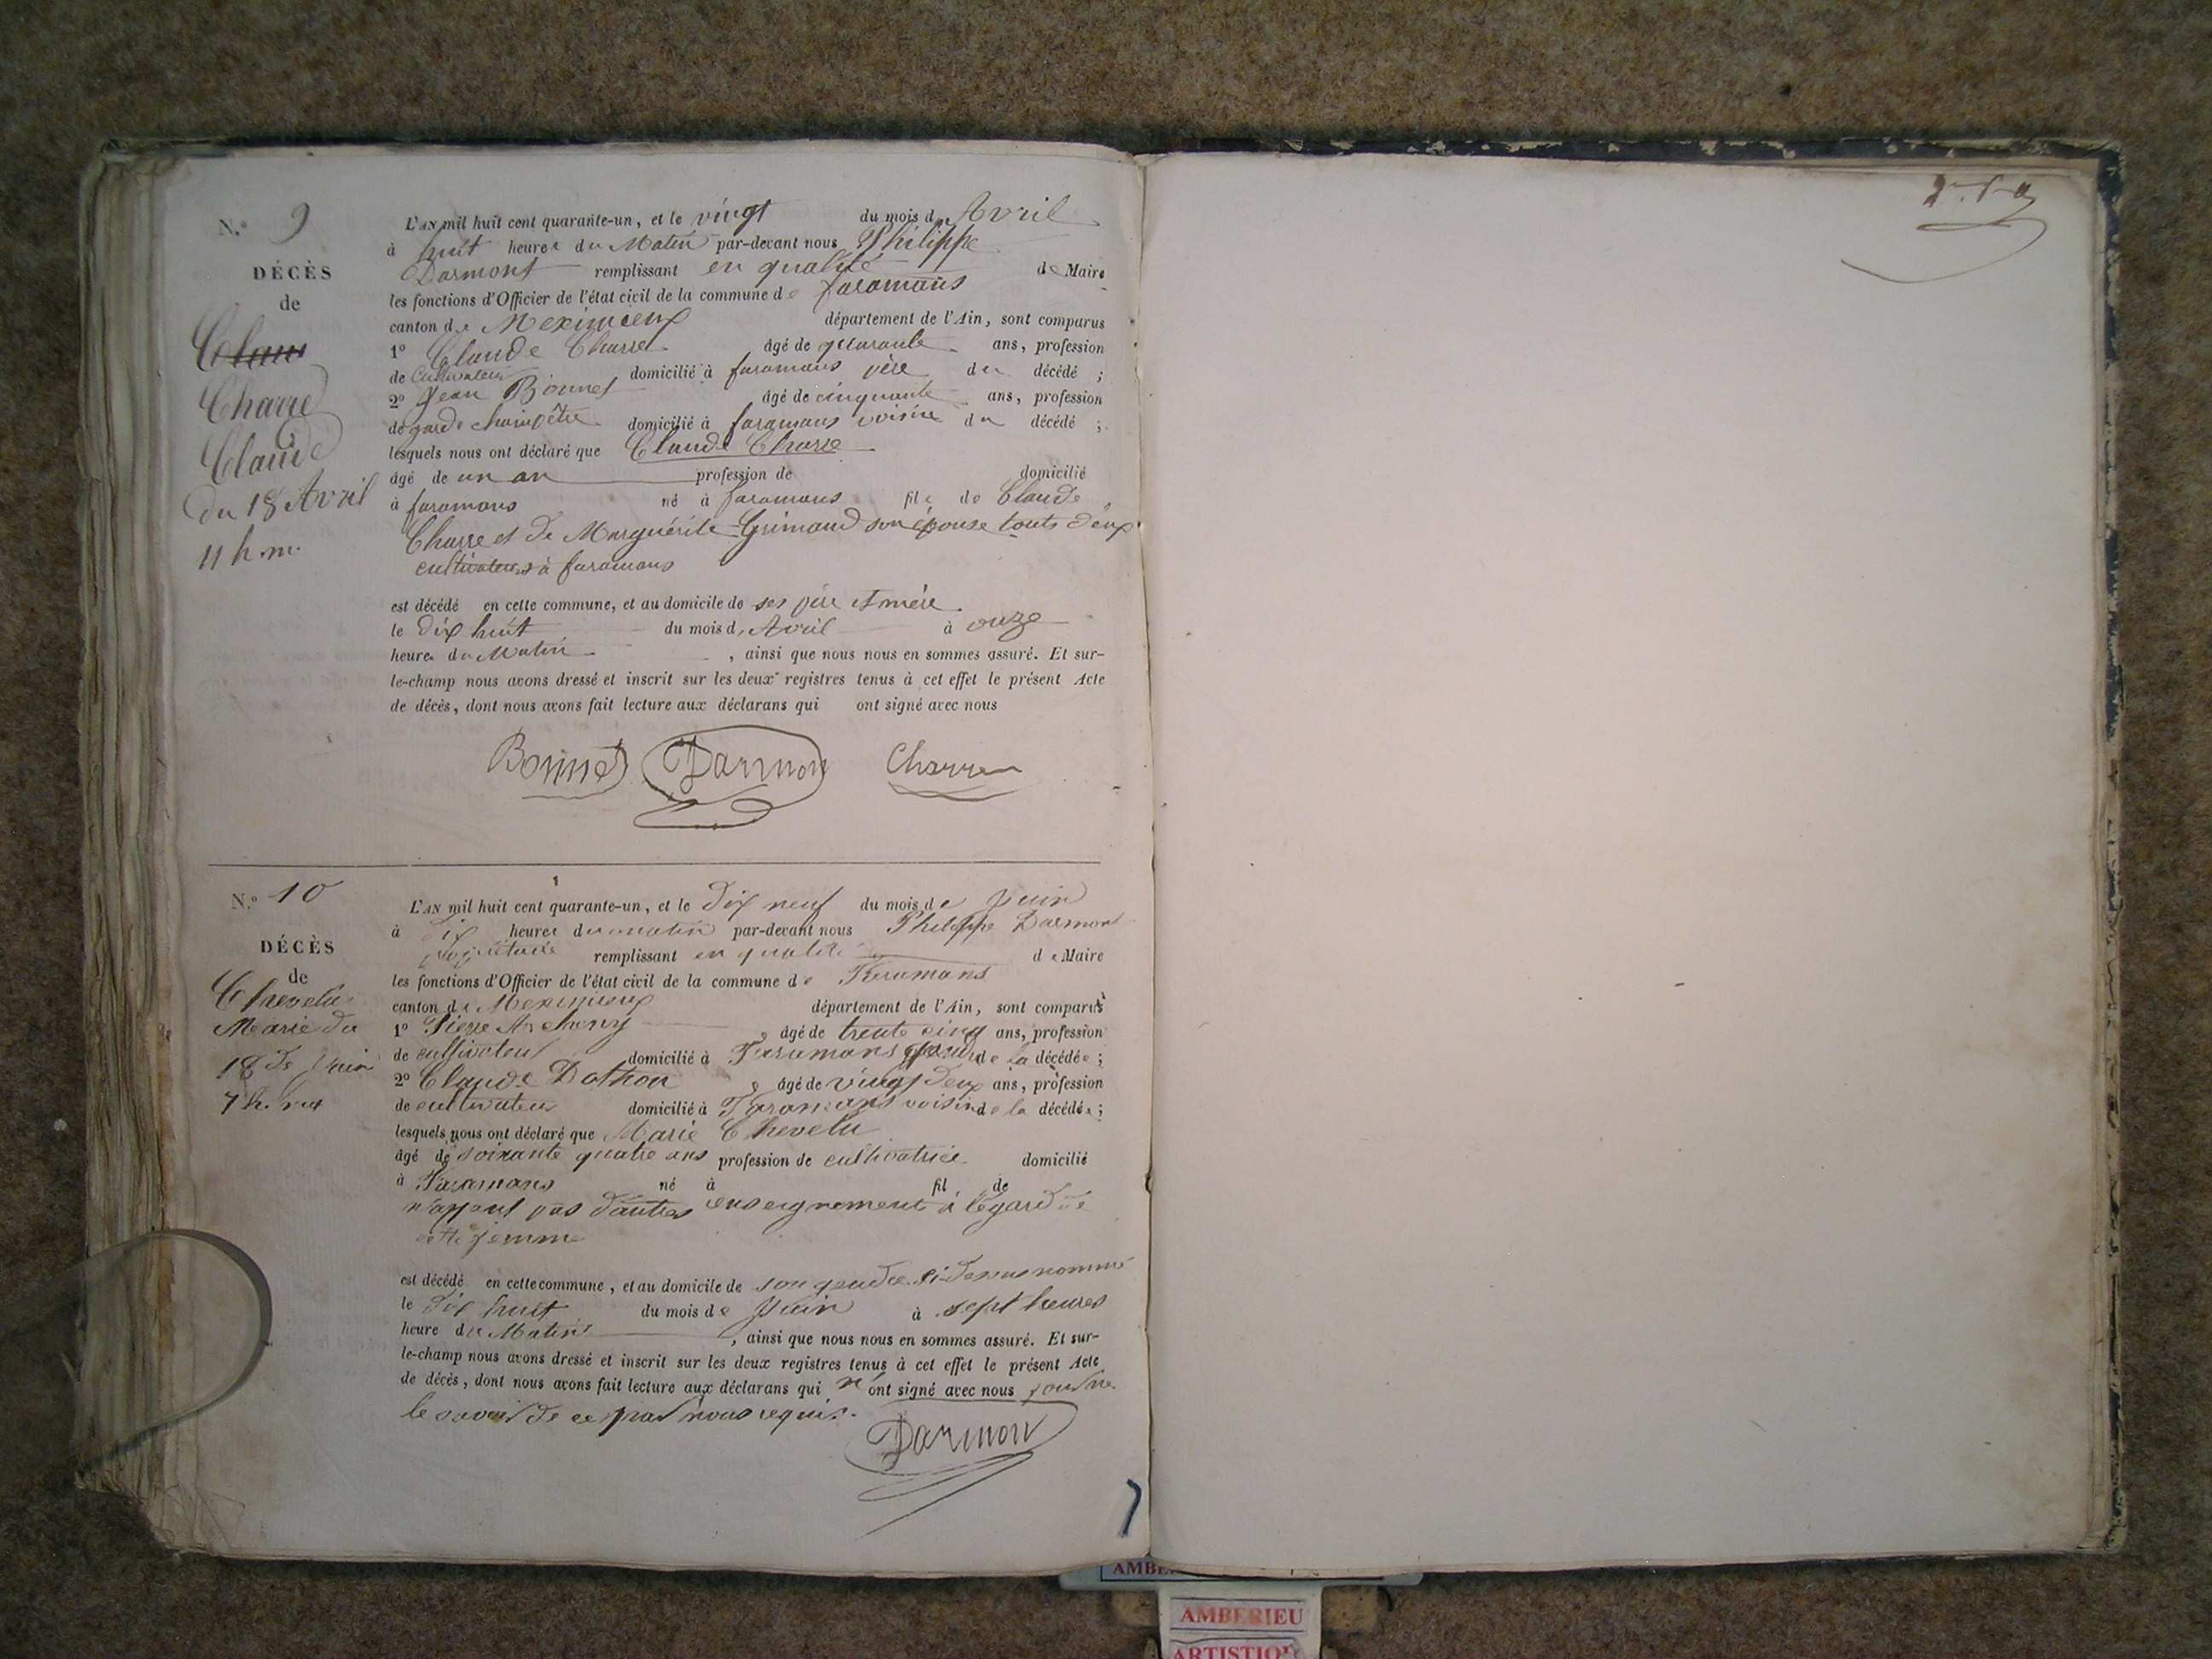 N.o 9
DÉCÈS
de
Clau
Charre
Claude
du 18 Avril
11 h. m.
L'AN mil huit cent quarante-un, et le vingt du mois de Avril
à huit heures du Matin par-devant nous Philippe
Darmont remplissant en qualité de Maire
les fonctions d'Officier de l'état civil de la commune de faramans
canton de Meximieux département de l'Ain, sont comparus
1o Claude Charre âgé de quarante ans, profession
de Cultivateur domicilié à faramans père du décédé ;
2o Jean Bonnet âgé de cinquante ans, profession
de garde champêtre domicilié à faramans voisin du décédé ;
lesquels nous ont déclaré que Claude Charre
âgé de un an profession de domicilié
à faramans né à faramans fils de Claude
Charre et de Marguérite Grimaud son épouse touts deux
cultivateurs à faramans
est décédé en cette commune, et au domicile de ses père et mère
le dix huit du mois d'Avril à onze
heures du Matin , ainsi que nous nous en sommes assuré. Et sur-
le-champ nous avons dressé et inscrit sur les deux registres tenus à cet effet le présent Acte
de décès, dont nous avons fait lecture aux déclarans qui ont signé avec nous
Bonnet Darmon Charre
N.o 10
DÉCÈS
de
Chevelu
Marie du
18 de juin
7 h.
L'AN mil huit cent quarante-un, et le dix neuf du mois de juin
à dix heures du matin par-devant nous Philippe Darmon
propriétaire remplissant en qualité de Maire
les fonctions d'Officier de l'état civil de la commune de Faramans
canton de Meximieux département de l'Ain, sont comparus
1o Pierre âgé de trente cinq ans, profession
de cultivateur domicilié à Faramans gendre de la décédée ;
2o Claude Dothon âgé de vingt deux ans, profession
de cultivateur domicilié à Faramans voisin de la décédée ;
lesquels nous ont déclaré que Marie Chevelu
âgé de soixante quatre ans profession de cultivatrice domicilié
à Faramans né à fil de
n'ayant pas d'autres enseignement à l'égard de
cette femme
est décédé en cette commune, et au domicile de son gendre ci-dessus nommé
le dix huit du mois de juin à sept heures
heure du Matin , ainsi que nous nous en sommes assuré. Et sur-
le-champ nous avons dressé et inscrit sur les deux registres tenus à cet effet le présent Acte
de décès, dont nous avons fait lecture aux déclarans qui n'ont signé avec nous pour ne
le savoir de ce par nous requis.
Darmon
AMBERIEU